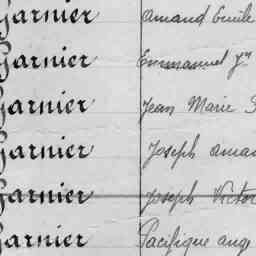 Garnier Amand Emile
Garnier Emmanuel Jn
Garnier Jean Marie
Garnier Joseph Aman
Garnier Joseph Victor
Garnier Pacifique Ange